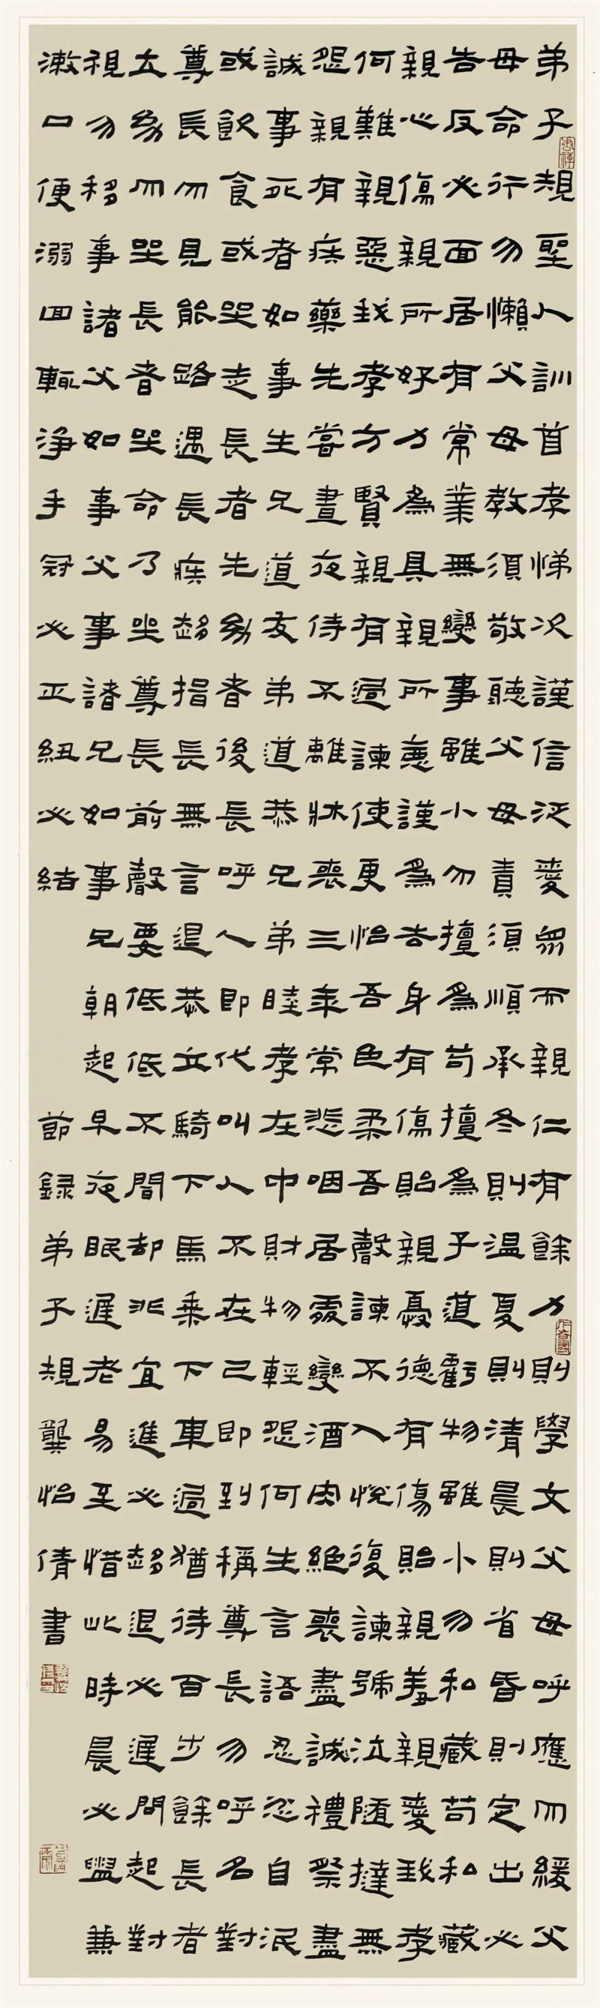 弟子規聖人訓首孝悌次謹信泛愛眾而親仁有餘力則學文父母呼應勿緩父
母命行勿懶父母教須敬聽父母責須順承冬則溫夏則清晨則省昏則定出必
告反必面居有常業無變事雖小勿擅為苟擅為子道虧物雖小勿私藏苟私藏
親心傷親所好力為具親所惡謹為去身有傷貽親憂德有傷貽親羞親愛我孝
何難親惡我孝方賢親有過諫使更怡吾色柔吾聲諫不入悅復諫號泣隨撻無
怨親有疾藥先嘗晝夜侍不離牀喪三年常悲咽居處變酒肉絕喪盡誠禮祭盡
誠事死者如事生兄道友弟道恭兄弟睦孝在中財物輕怨何生言語忍忿自泯
或飲食或坐走長者先幼者後長呼人即代叫人不在己即到稱尊長勿呼名對
尊長勿見能路遇長疾趨揖長無言退恭立騎下馬乘下車過猶待百步餘長者
立幼勿坐長者坐命乃坐尊長前聲要低低不聞卻非宜進必趨退必遲問起對
視勿移事諸父如事父事諸兄如事兄朝起早夜眠遲老易至惜此時晨必盥兼
漱口便溺回輒淨手冠必正紐必結
節錄弟子規龔怡倩書